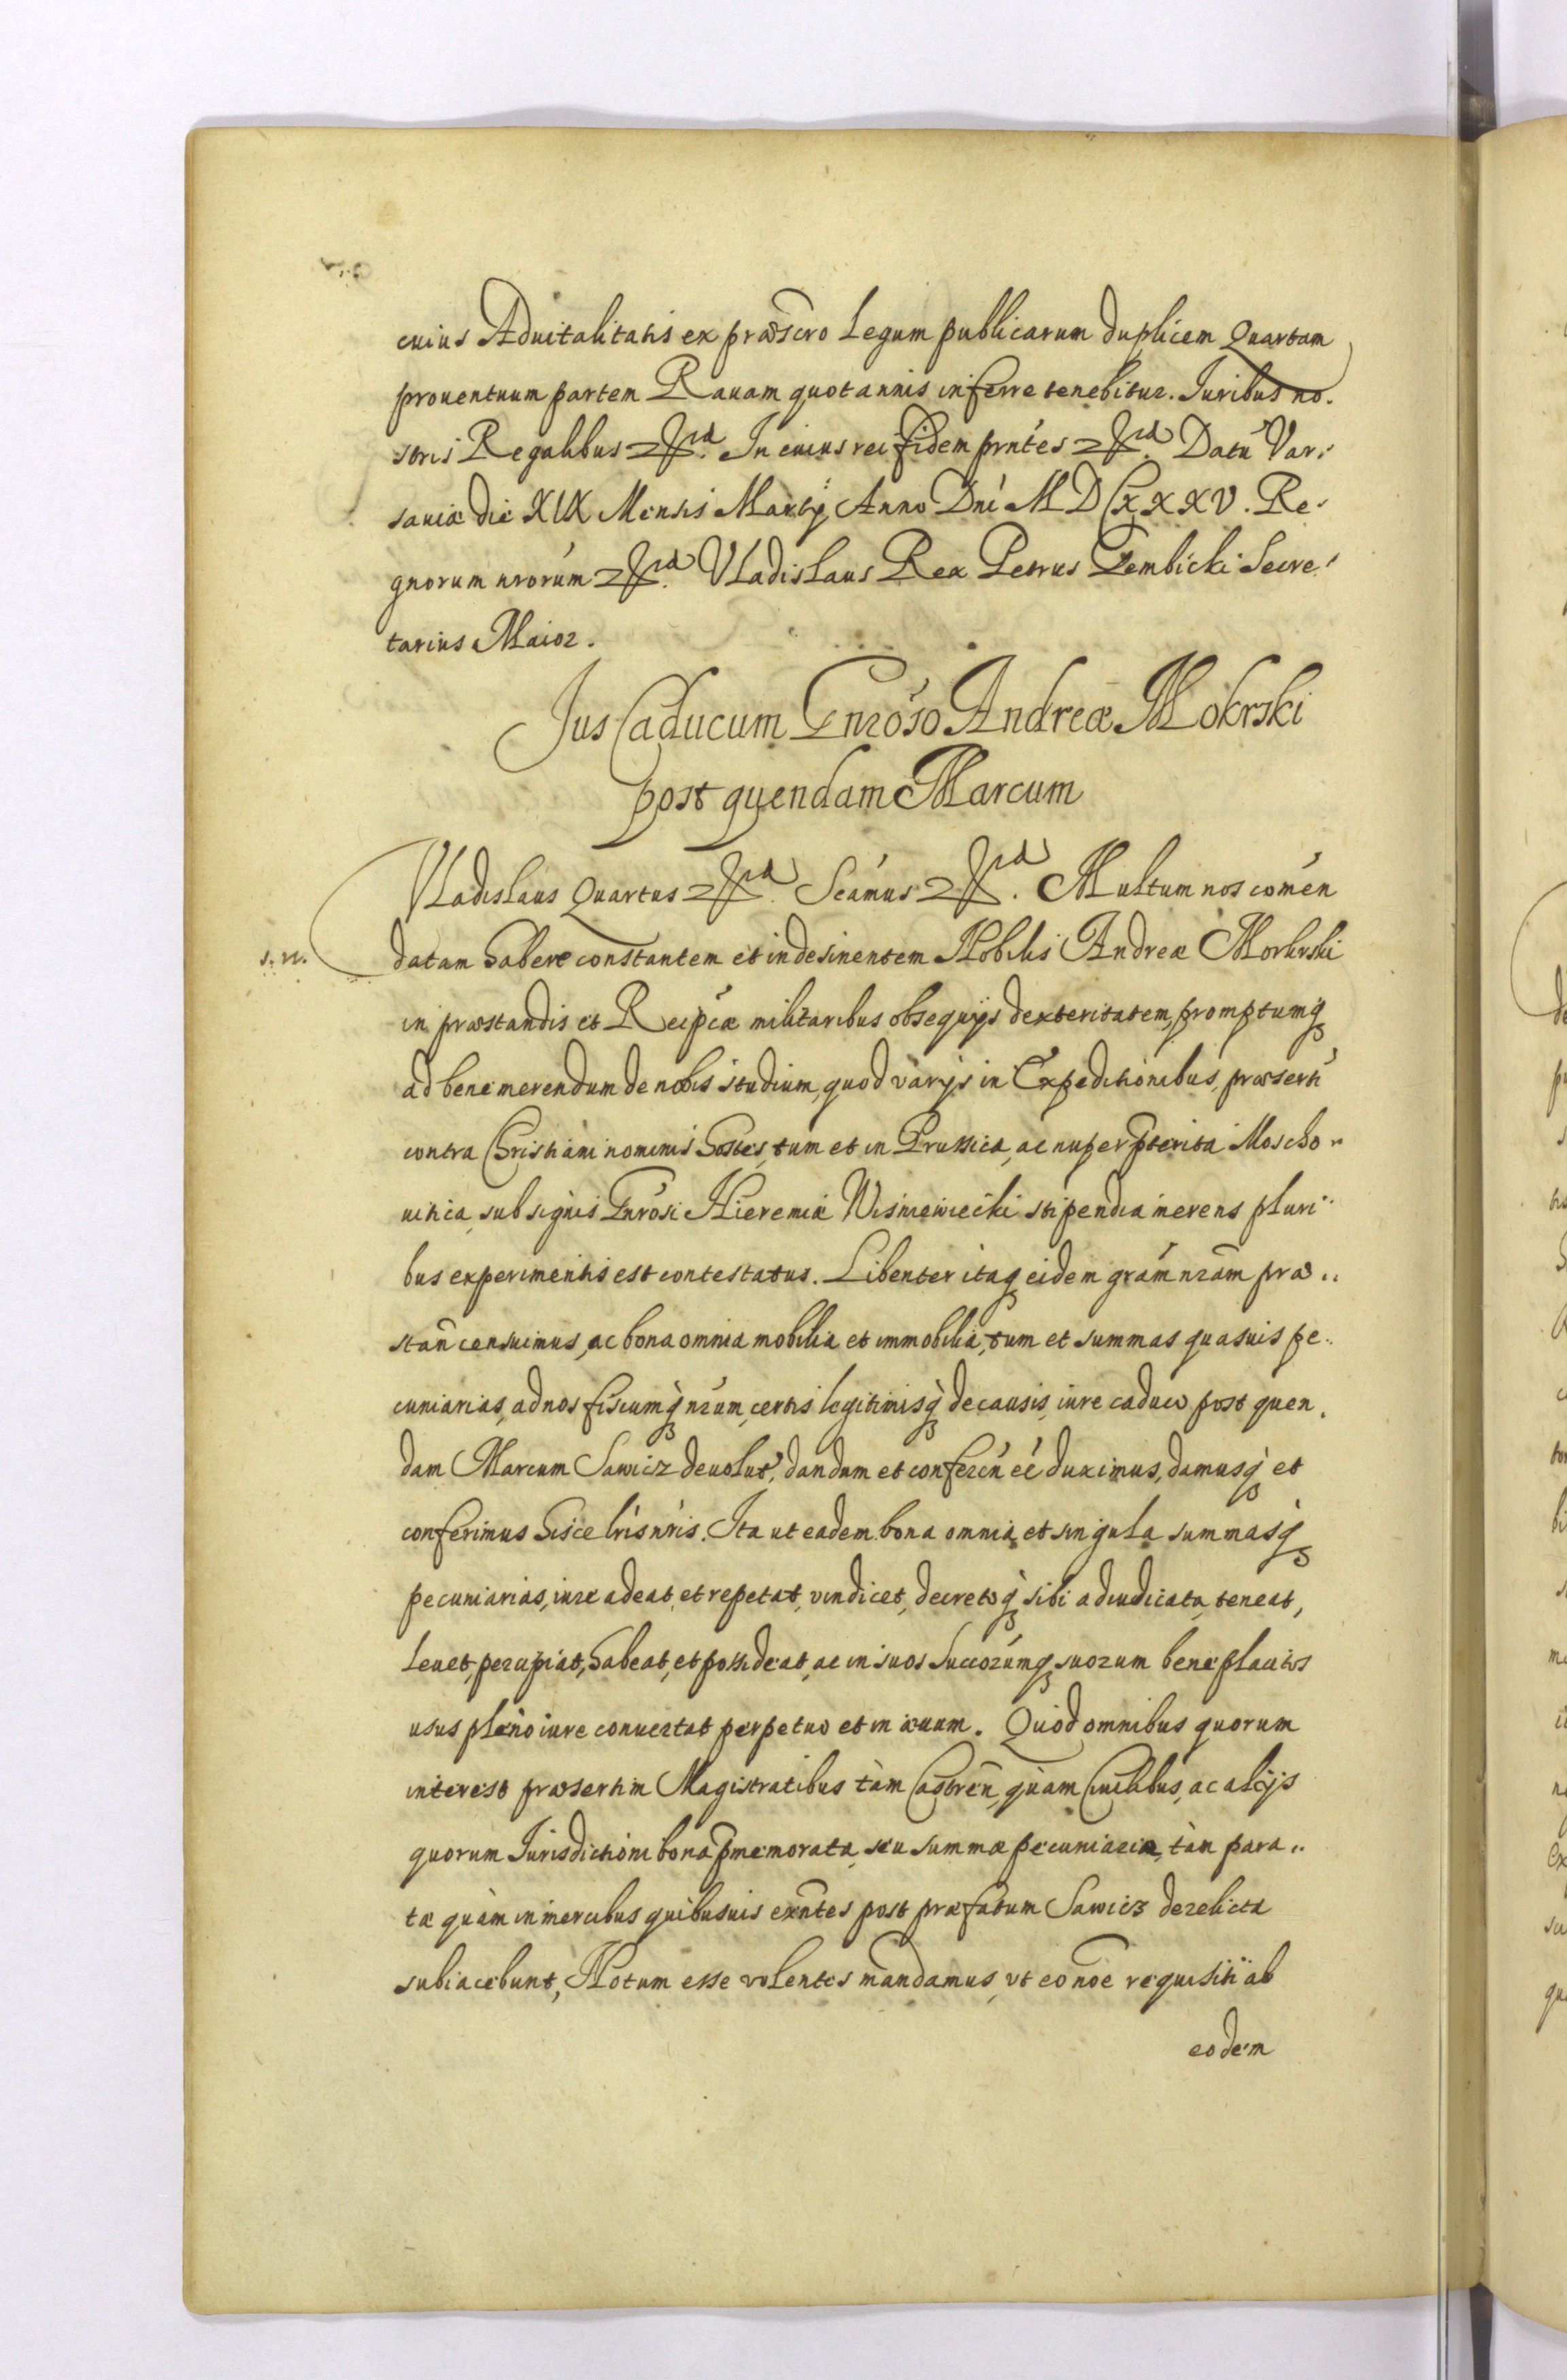 cuius Aduitalitatis ex præscro Legum publicarum duplicem Quartam
prouentuum partem Rauam quotannis inferre tenebitur. Iuribus no.
stris Regalibus etc. In cuius rei fidem prńtes etc. Datũ Var.
sauiæ die XIX Mensis Martij Anno Dni MDCXXXV. Re.
gnorum nrorum etc. Vladislaus Rex Petrus Gembicki Secre.
tarius Maior.
Jus Caducum Gnroso Andreæ Mokrski
post quendam Marcum
Vladislaus Quartus etc. Scamus etc. Multum nos comen
s. n.
datam habere constantem et indesinentem Nobilis Andreæ Mokrski
in præstandis et Reipcæ militaribus obsequijs dexteritatem, promptumq́
ad bene merendum de nobis studium, quod varijs in Expeditionibus, præserti
contra Christiani nominis hostes, tum et in Prussica, ac nuper pterita Moscho
uitica, sub signis Gnrosi Hieremiæ Wisniewiecki stipendia merens pluri
bus experimentis est contestatus. Libenter itaq́ eidem gram nram præ..
stan censuimus, ac bona omnia mobilia et immobilia, tum et summas quasuis pe..
cuniarias, ad nos fiscumq́ nrum, certis legitimisq́ de causis, iure caduco post quen.
dam Marcum Sawicz deuolut, dandum et conferen eé duximus, damusq́ et
conferimus hisce lris nris. Ita ut eadem bona omnia et singula summasq́
pecuniarias, iure adeat, et repetat, vindicet, decretoq́ sibi adiudicata, teneat,
leuet, percipiat, habeat, et possideat, ac in suos Succorumq́ suorum bene placitos
usus pleno iure conuertat perpetuo et in æuum. Quod omnibus quorum
interest præsertim Magistratibus tàm Castren, quàm Ciuilibus, ac alijs
quorum Iurisdictioni bona pmemorata, seu summæ pecuniariæ, tàm para..
tæ quàm in mercibus quibusuis exntes post præfatum Sawicz derelicta
subiacebunt, Notum esse volentes mandamus, vt eo noẽ requisiti ab
eodem